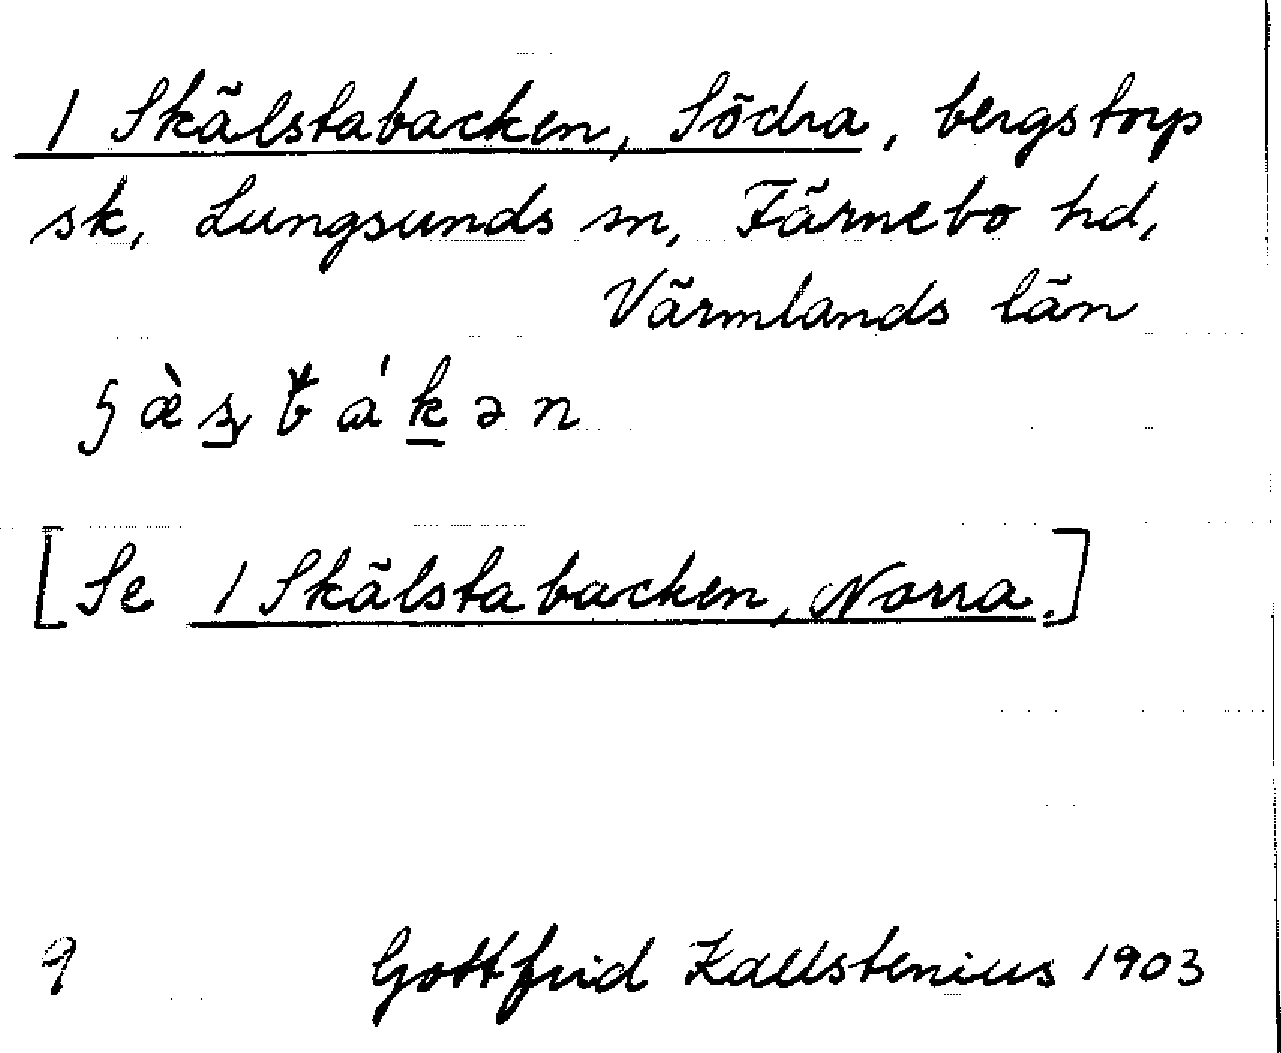 1 Skälstabacken, Södra, bergstorp
sk, Lungsunds sn, Färnebo hd,
Värmlands län
[Se 1 Skälstabacken, Norra.]
9 Gottfrid Kallstenius 1903